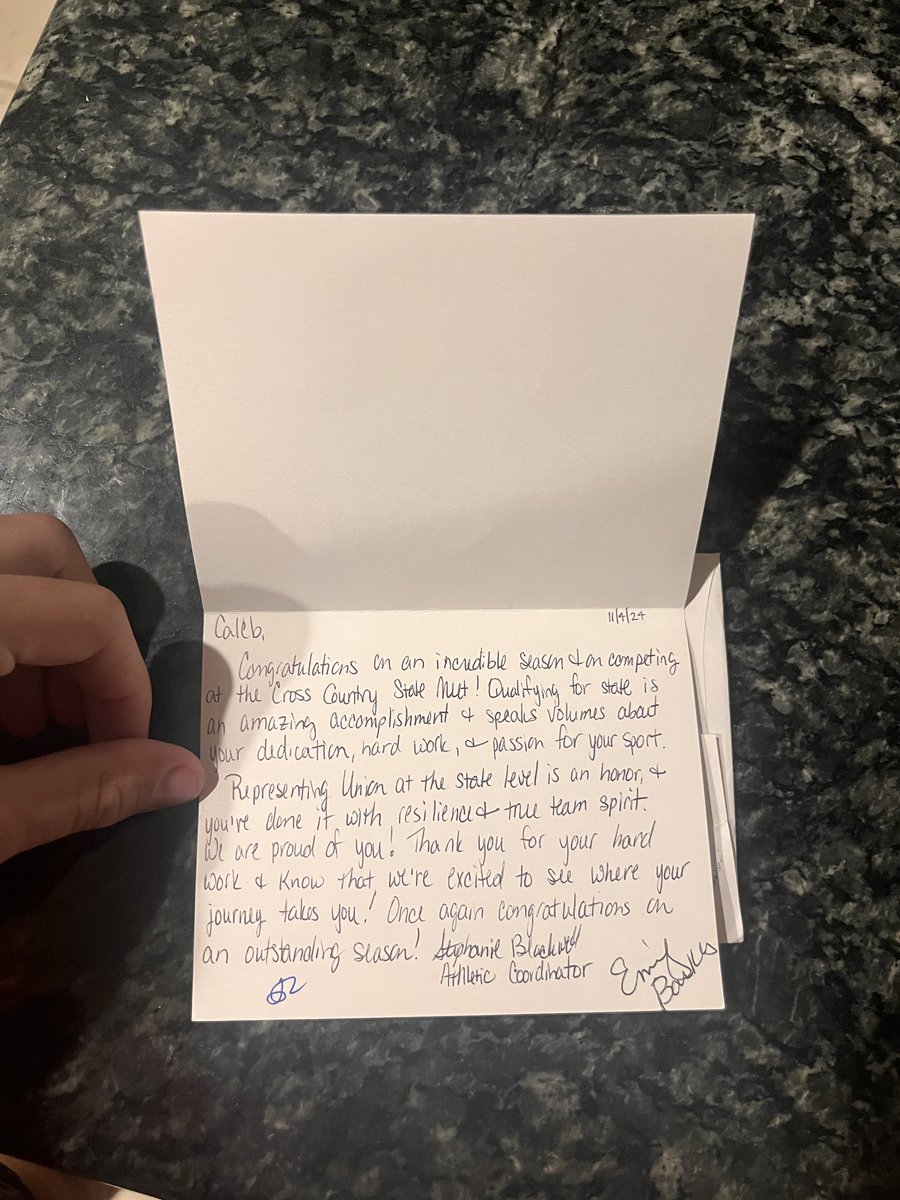 Caleb,
11/4/24
Congratulations on an incredible season & on competing
at the Cross Country State Meet! Qualifying for state is
an amazing accomplishment & speaks volumes about
your dedication, hard work, & passion for your sport.
Representing Union at the state level is an honor, &
you've done it with resilience & true team spirit.
We are proud of you! Thank you for your hard
work & know that we're excited to see where your
journey takes you! Once again congratulations on
an outstanding season! Stephanie Blackwell
Athletic Coordinator
Emily